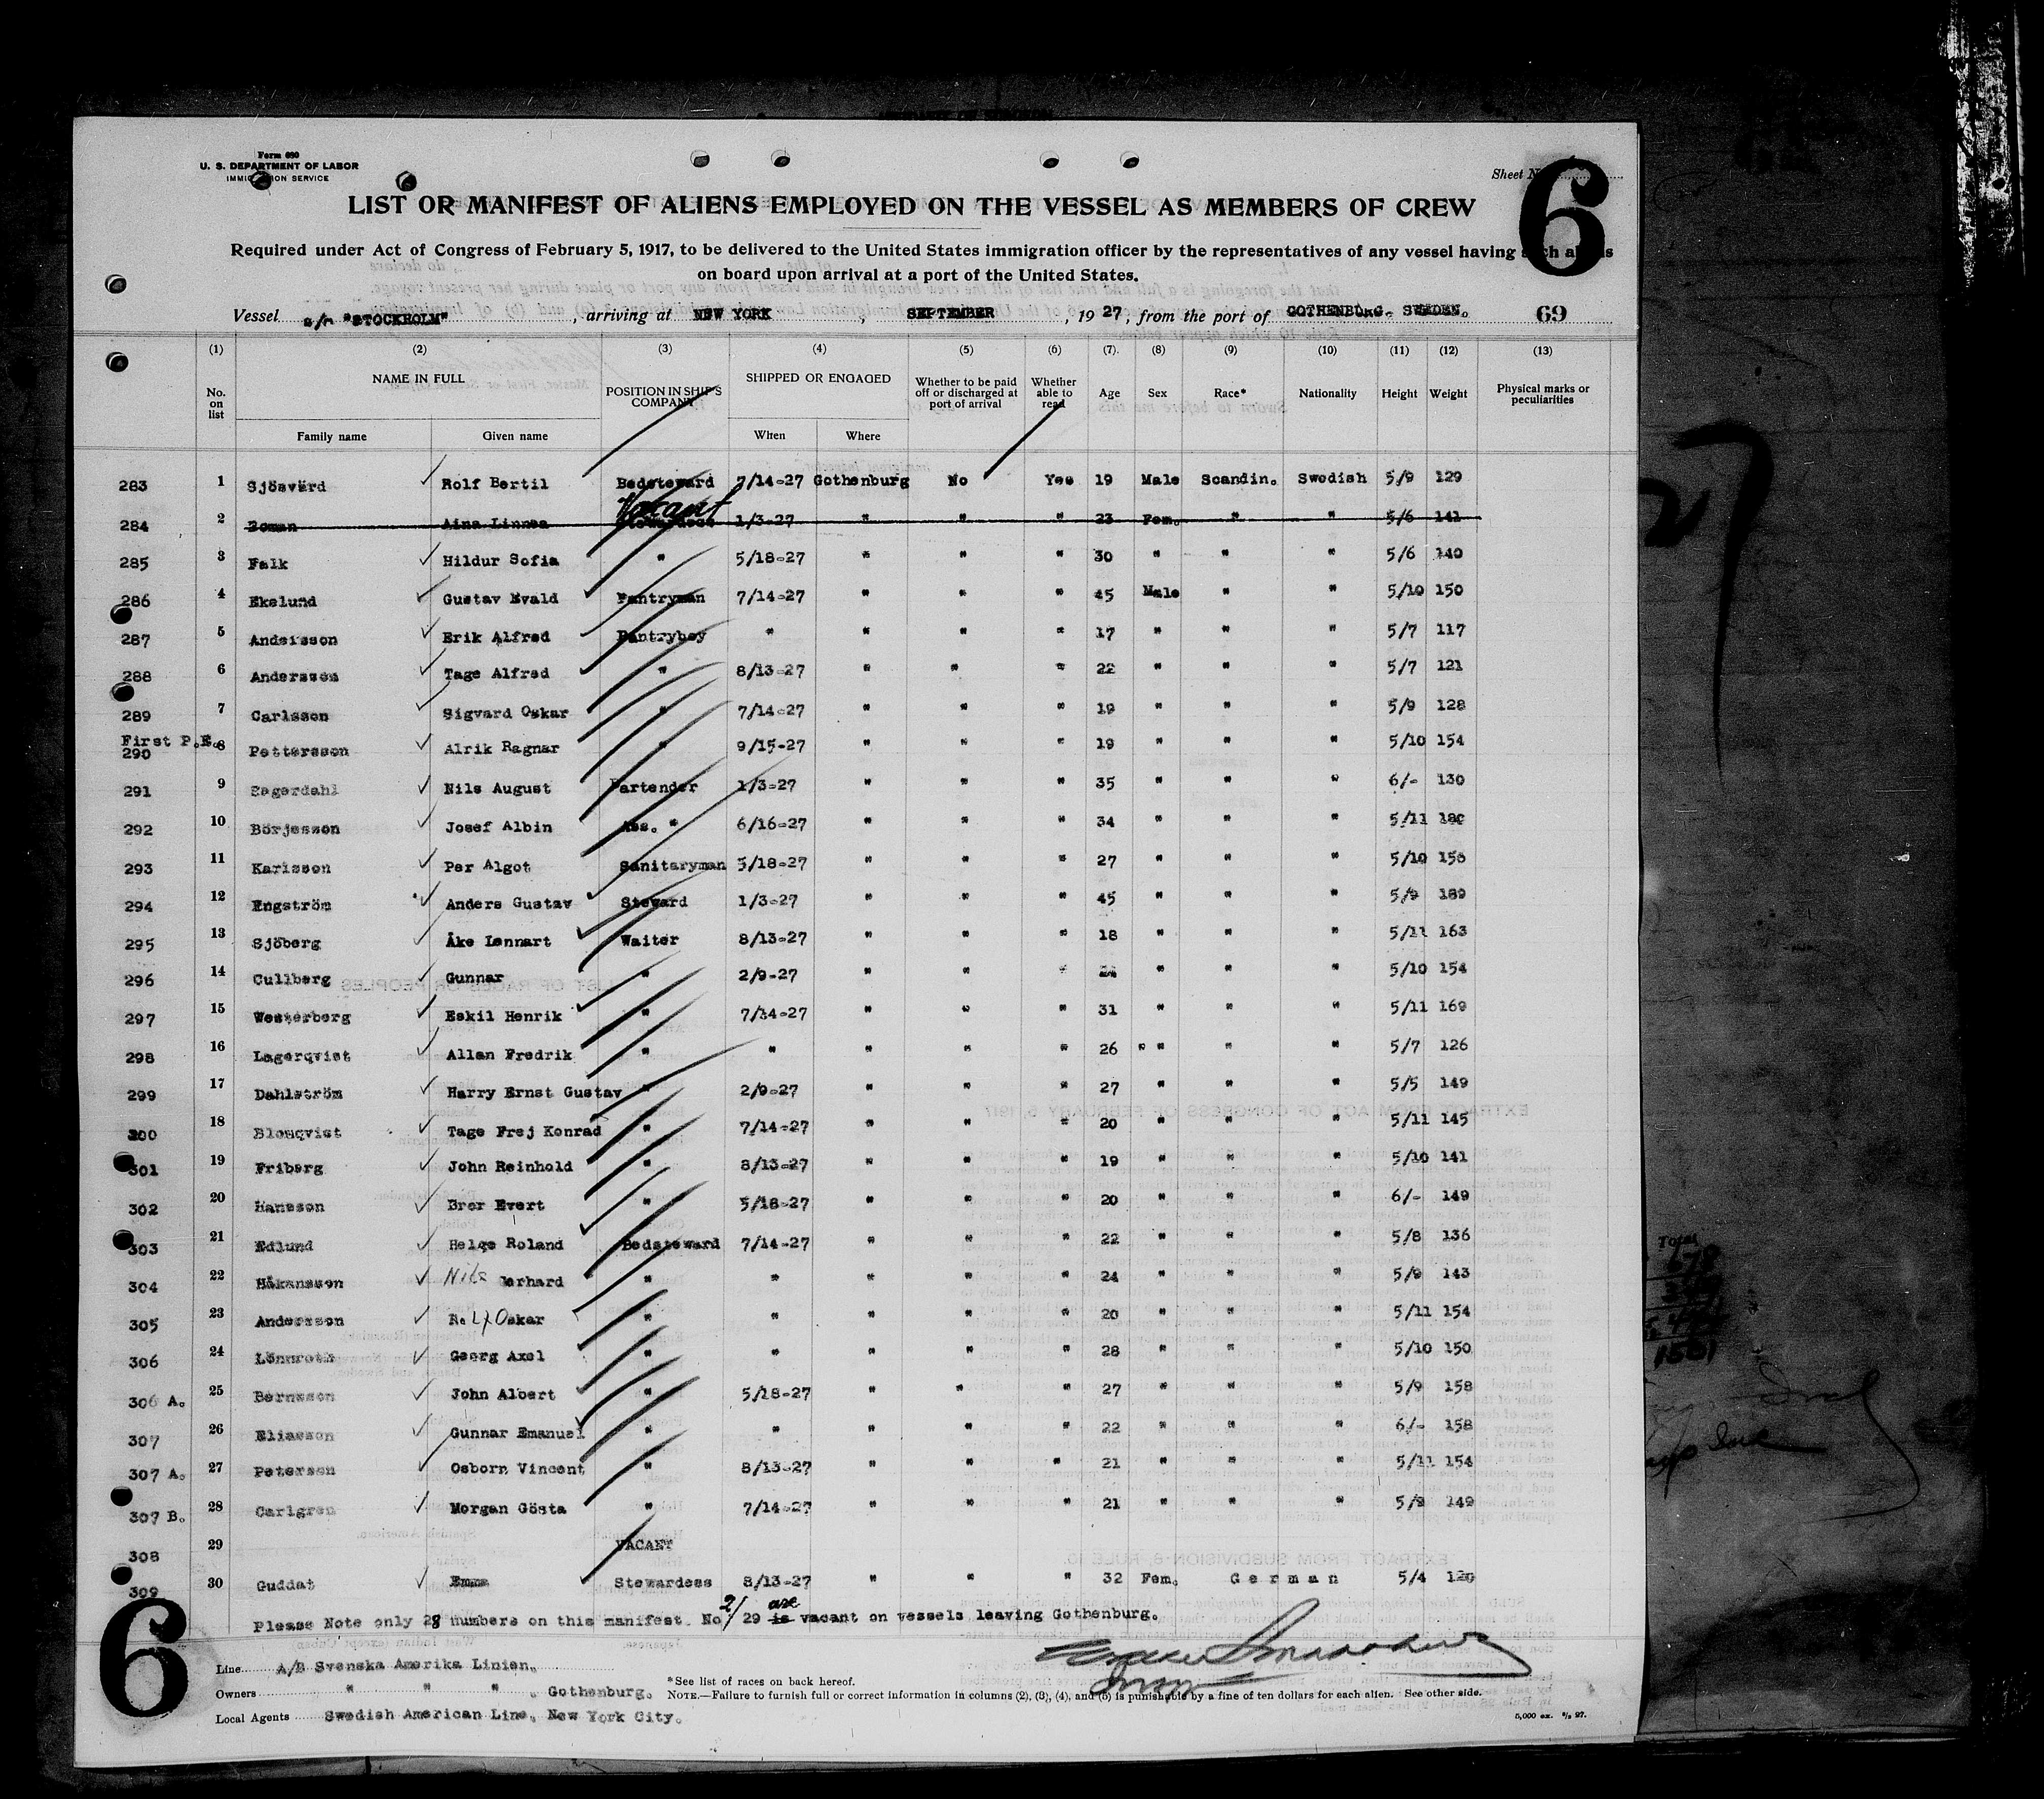 Form 680
U. S. DEPARTMENT OF LABOR
IMMIGRATION SERVICE
Sheet N
6
LIST OR MANIFEST OF ALIENS EMPLOYED ON THE VESSEL AS MEMBERS OF CREW
Required under Act of Congress of February 5, 1917, to be delivered to the United States immigration officer by the representatives of any vessel having such aliens
on board upon arrival at a port of the United States.
Vessel s/m "STOCKHOLM", arriving at NEW YORK, SEPTEMBER, 1927, from the port of GOTHENBURG. SWEDEN. 69
(1) (2) (3) (4) (5) (6) (7) (8) (9) (10) (11) (12) (13)
No. on list NAME IN FULL POSITION IN SHIP'S COMPANY SHIPPED OR ENGAGED Whether to be paid off or discharged at port of arrival Whether able to read Age Sex Race* Nationality Height Weight Physical marks or peculiarities
Family name Given name When Where
283 1 Sjösvärd Rolf Bertil Bedsteward 7/14-27 Gothenburg No Yes 19 Male Scandin. Swedish 5/9 129
Vacant
284 2 Boman Aina Linnea Stewardess 1/3-27 " " " 23 Fem. " " 5/6 141
285 3 Falk Hildur Sofia " 5/18-27 " " " 30 " " " 5/6 140
286 4 Ekelund Gustav Evald Pantryman 7/14-27 " " " 45 Male " " 5/10 150
287 5 Andersson Erik Alfred Pantryboy " " " " 17 " " " 5/7 117
288 6 Andersson Tage Alfred " 8/13-27 " " " 22 " " " 5/7 121
289 7 Carlsson Sigvard Oskar " 7/14-27 " " " 19 " " " 5/9 128
First P.E.
290 8 Pettersson Alrik Ragnar " 9/15-27 " " " 19 " " " 5/10 154
291 9 Segerdahl Nils August Bartender 1/3-27 " " " 35 " " " 6/- 130
292 10 Börjesson Josef Albin Ass. " 6/16-27 " " " 34 " " " 5/11
293 11 Karlsson Per Algot Sanitaryman 5/18-27 " " " 27 " " " 5/10 158
294 12 Engström Anders Gustav Steward 1/3-27 " " " 45 " " " 5/9 189
295 13 Sjöberg Åke Lennart Waiter 8/13-27 " " " 18 " " " 5/11 163
296 14 Cullberg Gunnar " 2/9-27 " " " " " " 5/10 154
297 15 Westerberg Eskil Henrik " 7/14-27 " " " 31 " " " 5/11 169
298 16 Lagerqvist Allan Fredrik " " " " " 26 " " " " 5/7 126
299 17 Dahlström Harry Ernst Gustav " 2/9-27 " " " 27 " " " 5/5 149
300 18 Blomqvist Tage Frej Konrad " 7/14-27 " " " 20 " " " 5/11 145
301 19 Friberg John Reinhold " 8/13-27 " " " 19 " " " 5/10 141
302 20 Hansson Bror Evert " 5/18-27 " " " 20 " " " 6/- 149
303 21 Edlund Helge Roland Bedsteward 7/14-27 " " " 22 " " " 5/8 136
304 22 Håkansson Nils Gerhard " " " " " 24 " " " 5/9 143
305 23 Andersson Rolf Oskar " " " " " 20 " " " 5/11 154
306 24 Lönnroth Georg Axel " " " " " 28 " " " 5/10 150
306 A. 25 Berntsson John Albert " 5/18-27 " " " 27 " " " 5/9 158
307 26 Eliasson Gunnar Emanuel " " " " " 22 " " " 6/- 158
307 A. 27 Peterson Osborn Vincent " 8/13-27 " " " 21 " " " 5/11 154
307 B. 28 Carlgren Morgan Gösta " 7/14-27 " " " 21 " " " 5/9 149
308 29 VACANT
309 30 Guddat Emma Stewardess 8/13-27 " " " 32 Fem. German 5/4 120
Please Note only 28 numbers on this manifest. No 2/ 29 is are vacant on vessels leaving Gothenburg.
6
Line A/B Svenska Amerika Linien.
Owners " " " . Gothenburg.
Local Agents Swedish American Line, New York City.
*See list of races on back hereof.
NOTE.—Failure to furnish full or correct information in columns (2), (3), (4), and (5) is punishable by a fine of ten dollars for each alien. See other side.
5,000 ex. 6/5 27.
27
Total
678
1501